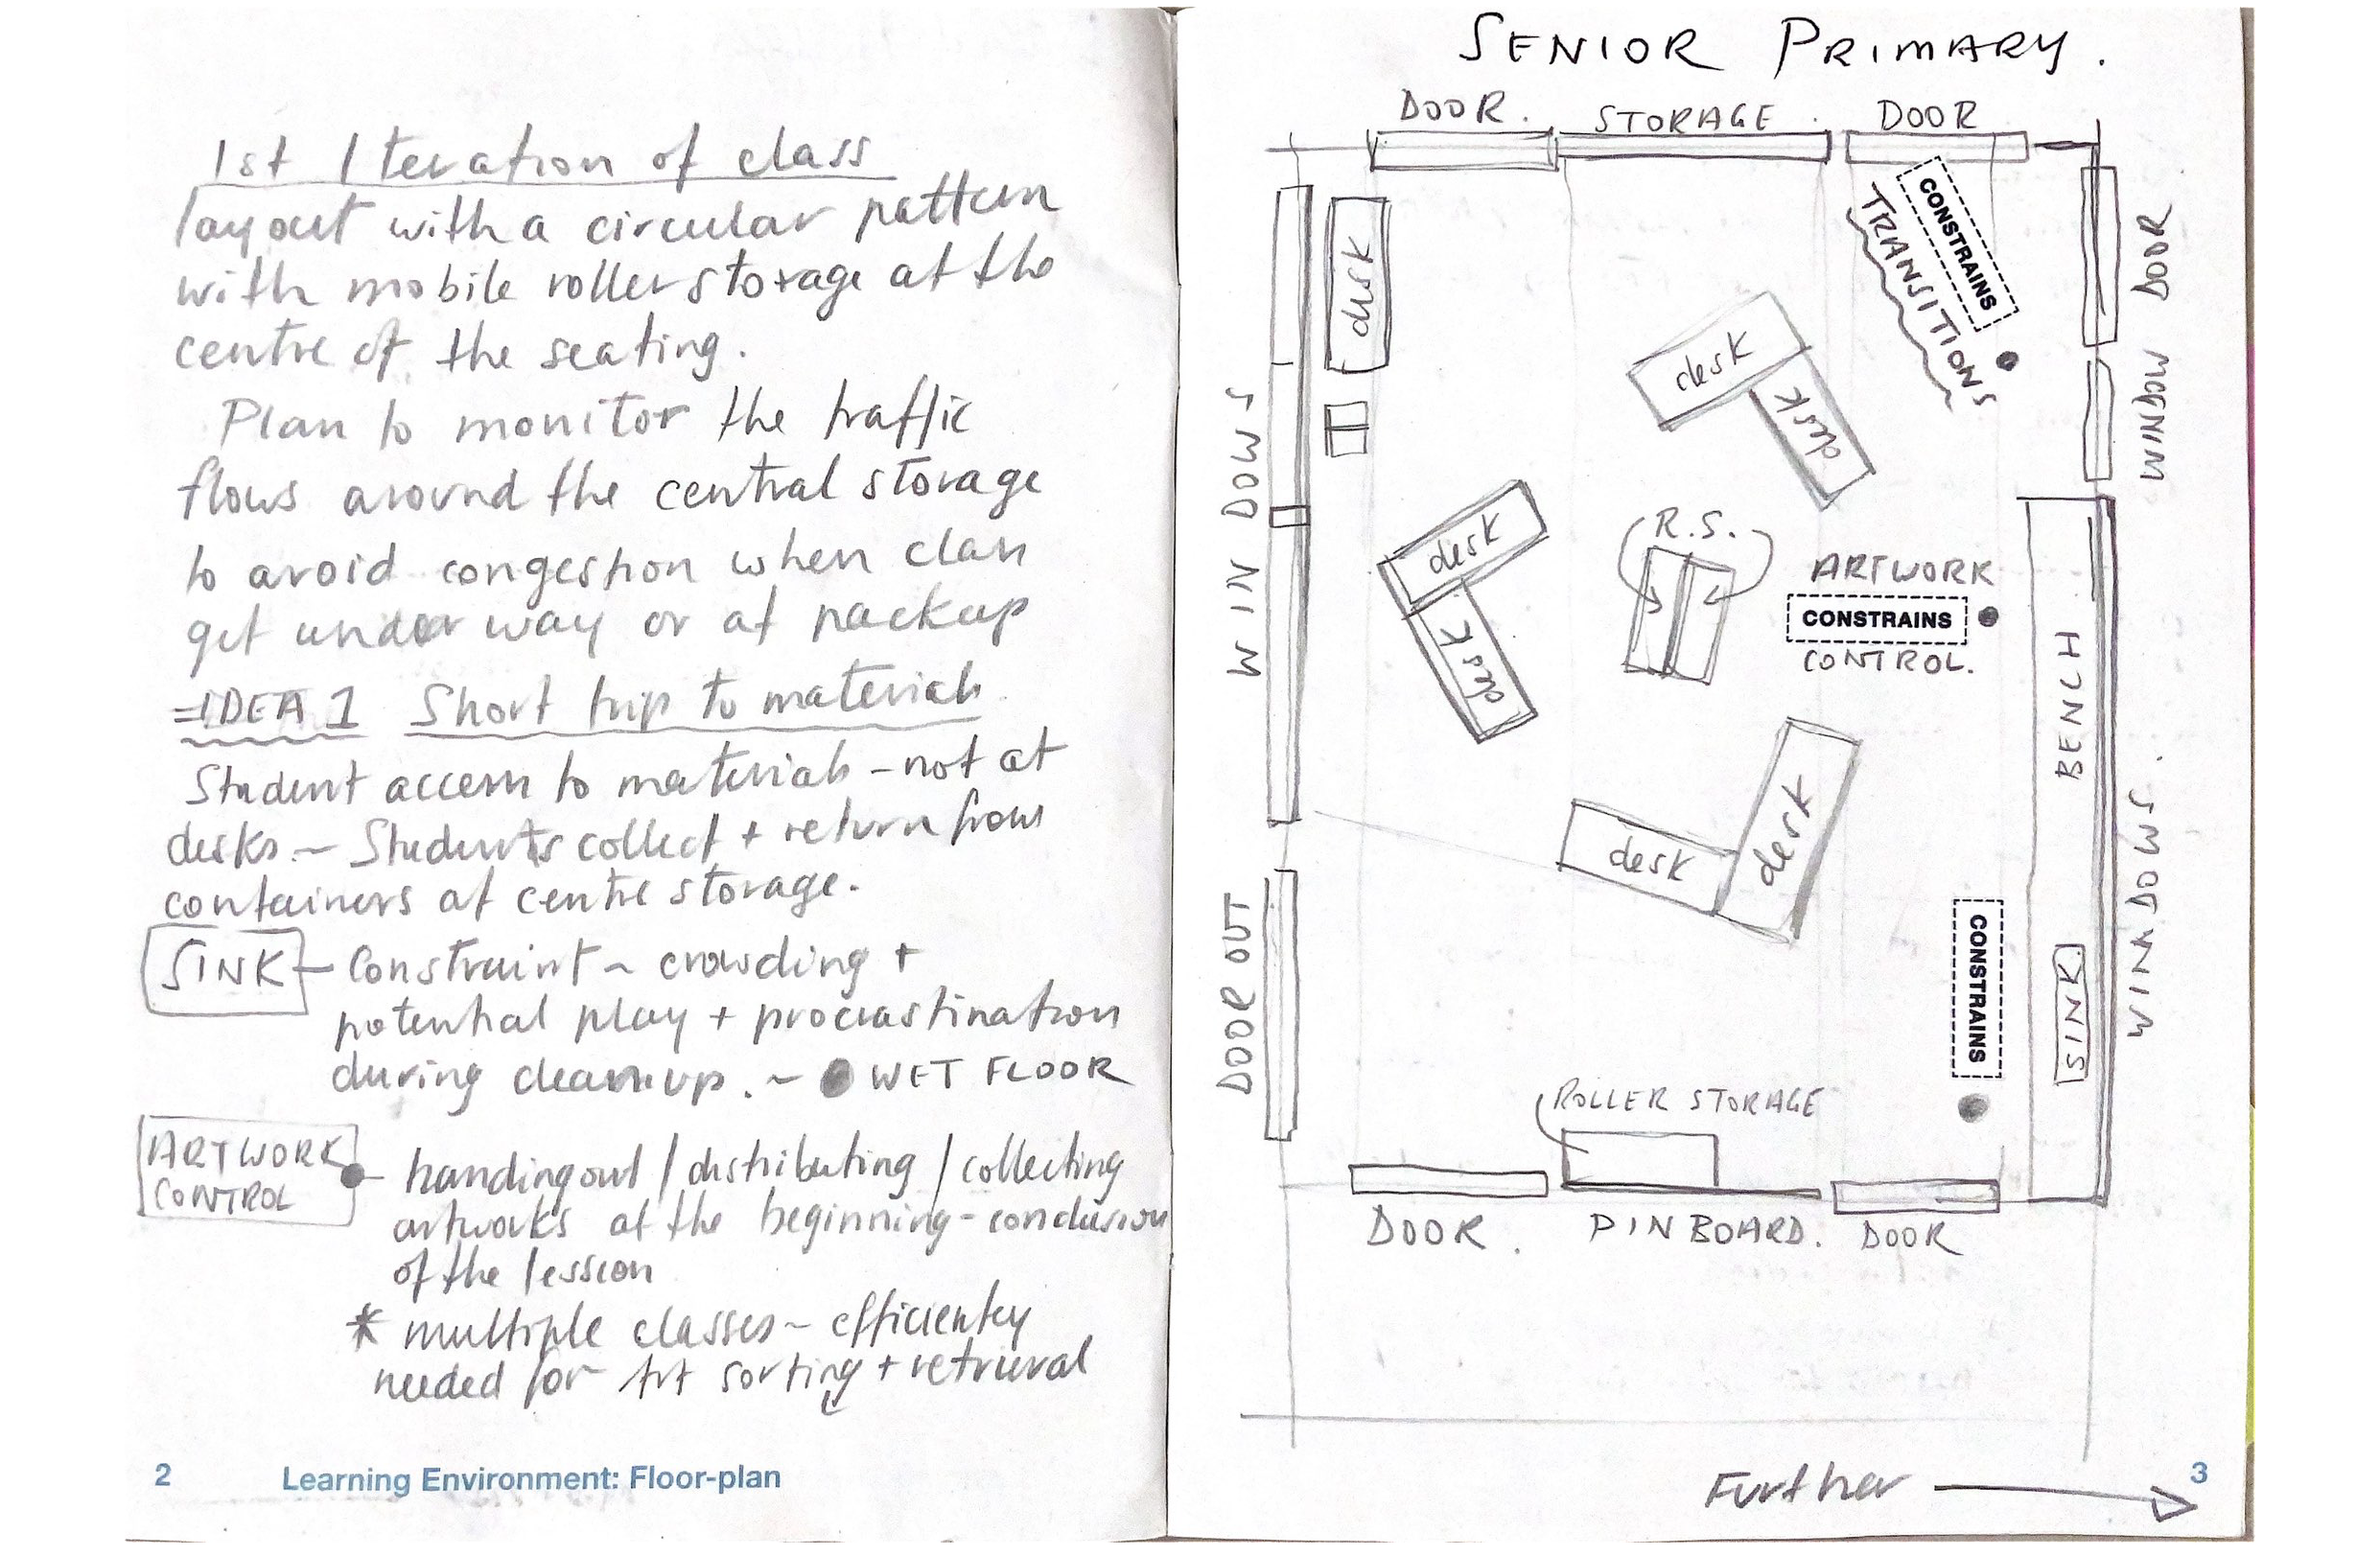 1st Iteration of class
layout with a circular pattern
with mobile roller storage at the
centre of the seating.
Plan to monitor the traffic
flows around the central storage
to avoid congestion when class
get under way or at packup
=IDEA 1 Short trip to materials
Student access to materials - not at
desks ~ Students collect + return from
containers at centre storage.
SINK - Constraint ~ crowding +
potential play + procrastination
during cleanup. ~ ● WET FLOOR
ARTWORK
CONTROL
- handing out / distributing / collecting
artworks at the beginning - conclusion
of the lession
* multiple classes ~ efficientcy
needed for Art sorting + retrieval
2
Learning Environment: Floor-plan
SENIOR PRIMARY.
DOOR.
STORAGE
DOOR
CONSTRAINS
TRANSITIONS
DOOR
WINDOW
desk
desk
desk
WINDOWS
desk
desk
R.S.
ARTWORK
CONSTRAINS
CONTROL.
BENCH
desk
desk
WINDOWS.
CONSTRAINS
SINK
DOOR OUT
ROLLER STORAGE
DOOR.
PINBOARD.
DOOR
Further
3